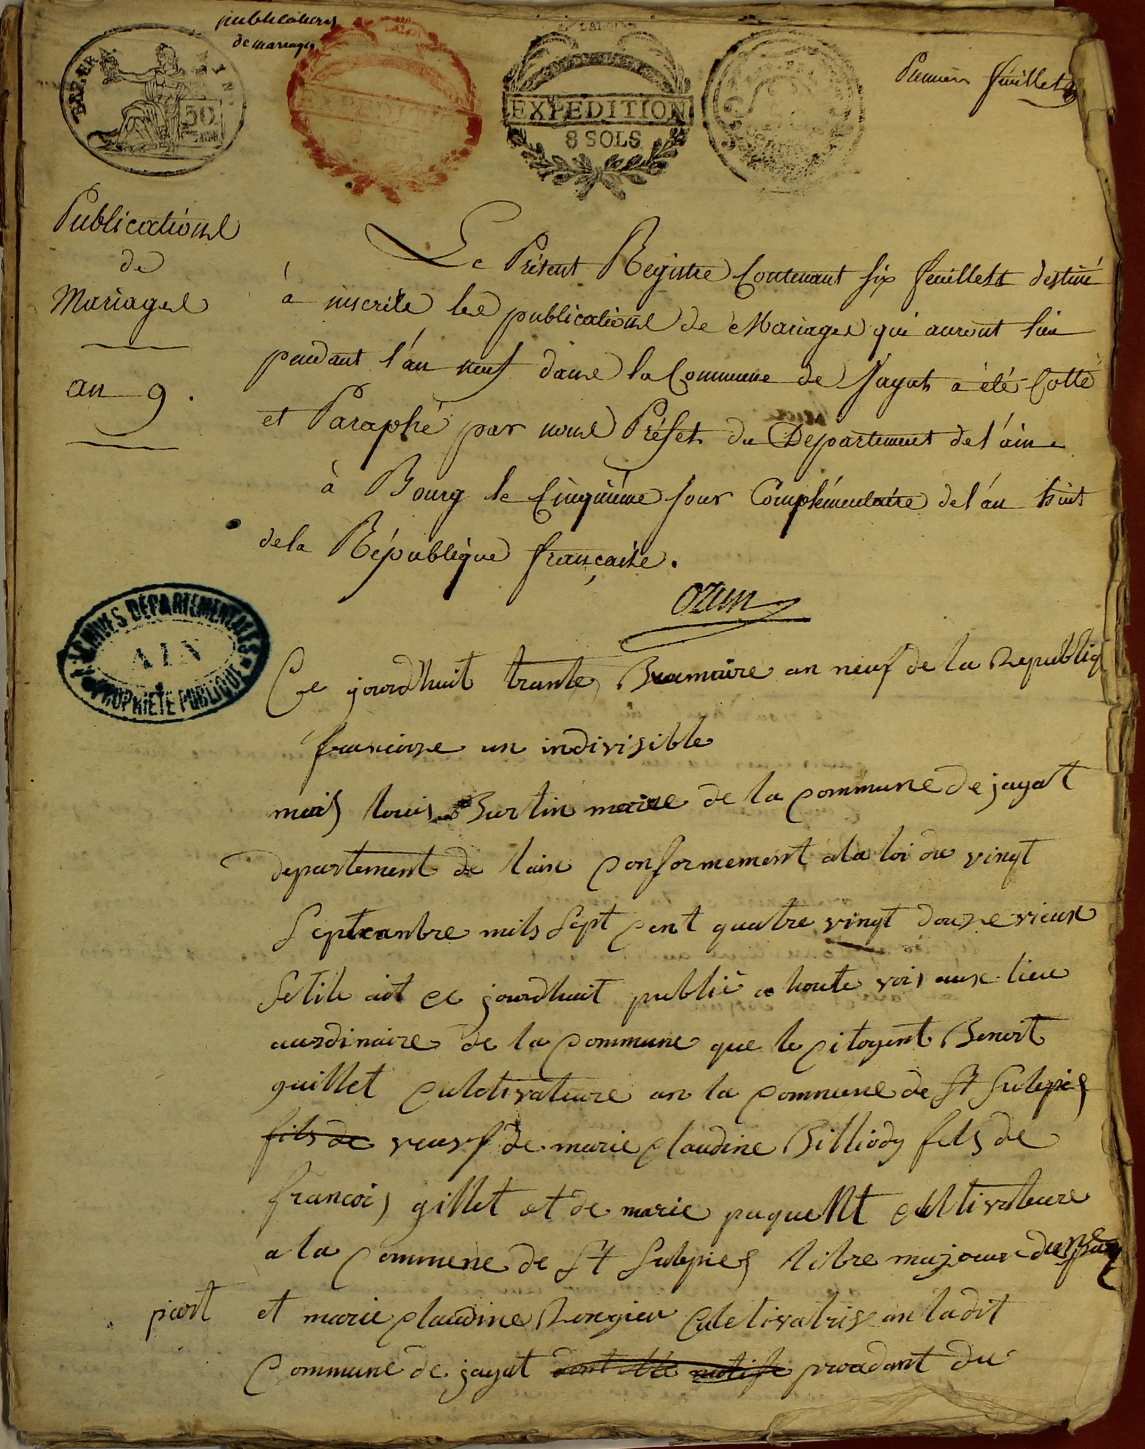 publications
de mariages
EXPEDITION
8 SOLS
50
Premier feuillet
Publications
de
Mariages
an 9.
Le Présent Registre Contenant six feuillets destiné
à inscrire les publications de Mariages qui auront lieu
pendant l'an neuf dans la Commune de Jayat a été Cotté
et Paraphé par nous Préfet du Département de l'ain
à Bourg le Cinquième Jour Complémentaire de l'an huit
de la République française.
Ozun
ARCHIVES DEPARTEMENTALES
AIN
PROPRIETE PUBLIQUE
Ce jourdhuit trante Brumaire an neuf de la Republiq
francoise un indivisible
moi louis Burtin maire de la commune de jayat
departement de lain conformement ala loi du vingt
Septeambre mils Sept cent quatre vingt douze vieux
Setile ait ce jourdhuit publié a haute vois aux lieu
auordinaire de la commune que le citoyent Benoit
guillet culetivateure an la commune de St Sulepis
fils de veusf de marie claudine Billiody fils de
francois gillet et de marie paquellt cultivateure
a la commune de St Sulepies libre majeure
part
et marie claudine Rongier Culetivatris an ladit
Commune de jayat provdant du